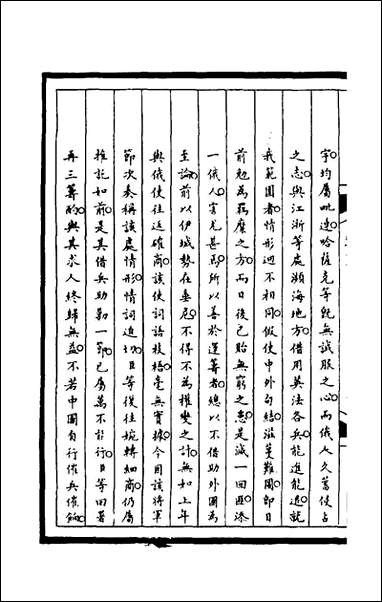 字均屬毗連哈薩克等既無誠服之心而俄人久蓄侵占
之志與江浙等處瀕海地方借用英法各兵能進能退就
我範圍者情形迥不相同假使中外勾結滋蔓難圖即目
前勉為羈縻之方而日後已貽無窮之患是滅一回匪添
一俄人害尤甚焉所以善於運籌者總以不借助外國為
至論前以伊城勢在垂危不得不為權變之計無如上年
與俄使往返確商該使詞語枝梧毫無實據今因該將軍
節次奏稱該處情形情詞迫切臣等復往婉轉細商仍屬
推託如前是其借兵助勦一節已屬萬不能行臣等因著
再三籌酌與其求人終歸無益不若中國自行催兵催餉